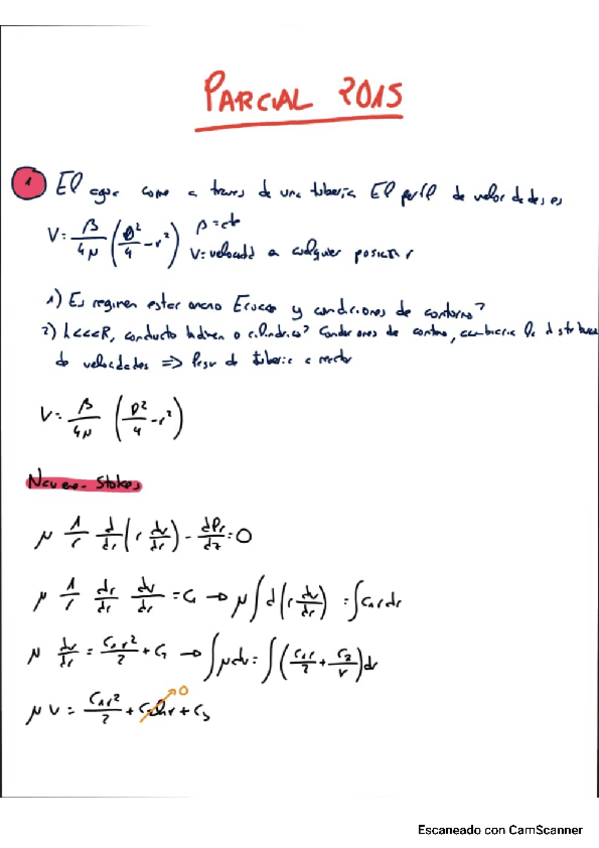 PARCIAL 2015
1 El agua corre a traves de una tuberia El perfil de velocidades es
V = β/4μ (D²/4 - r²) β = cte
V = velocidad a cualquier posicion r
1) Es regimen estacionario Ecuac y condiciones de contorno?
2) L<<<R, conducto o cilindrico? Condiciones de contorno, cambiaria la distribuc
de velocidades => Pasa de tuberia a
V = β/4μ (D²/4 - r²)
Navier-Stokes
μ 1/r d/dr (r dv/dr) - dPr/dz = 0
μ 1/r dr/dr dv/dr = C₁ → μ∫d(r dv/dr) = ∫C₁r dr
μ dv/dr = C₁r²/2 + C₂ → ∫μdv = ∫(C₁r/2 + C₂/r)dr
μ v = C₁r²/2 + C₂lnr + C₃
0
Escaneado con CamScanner